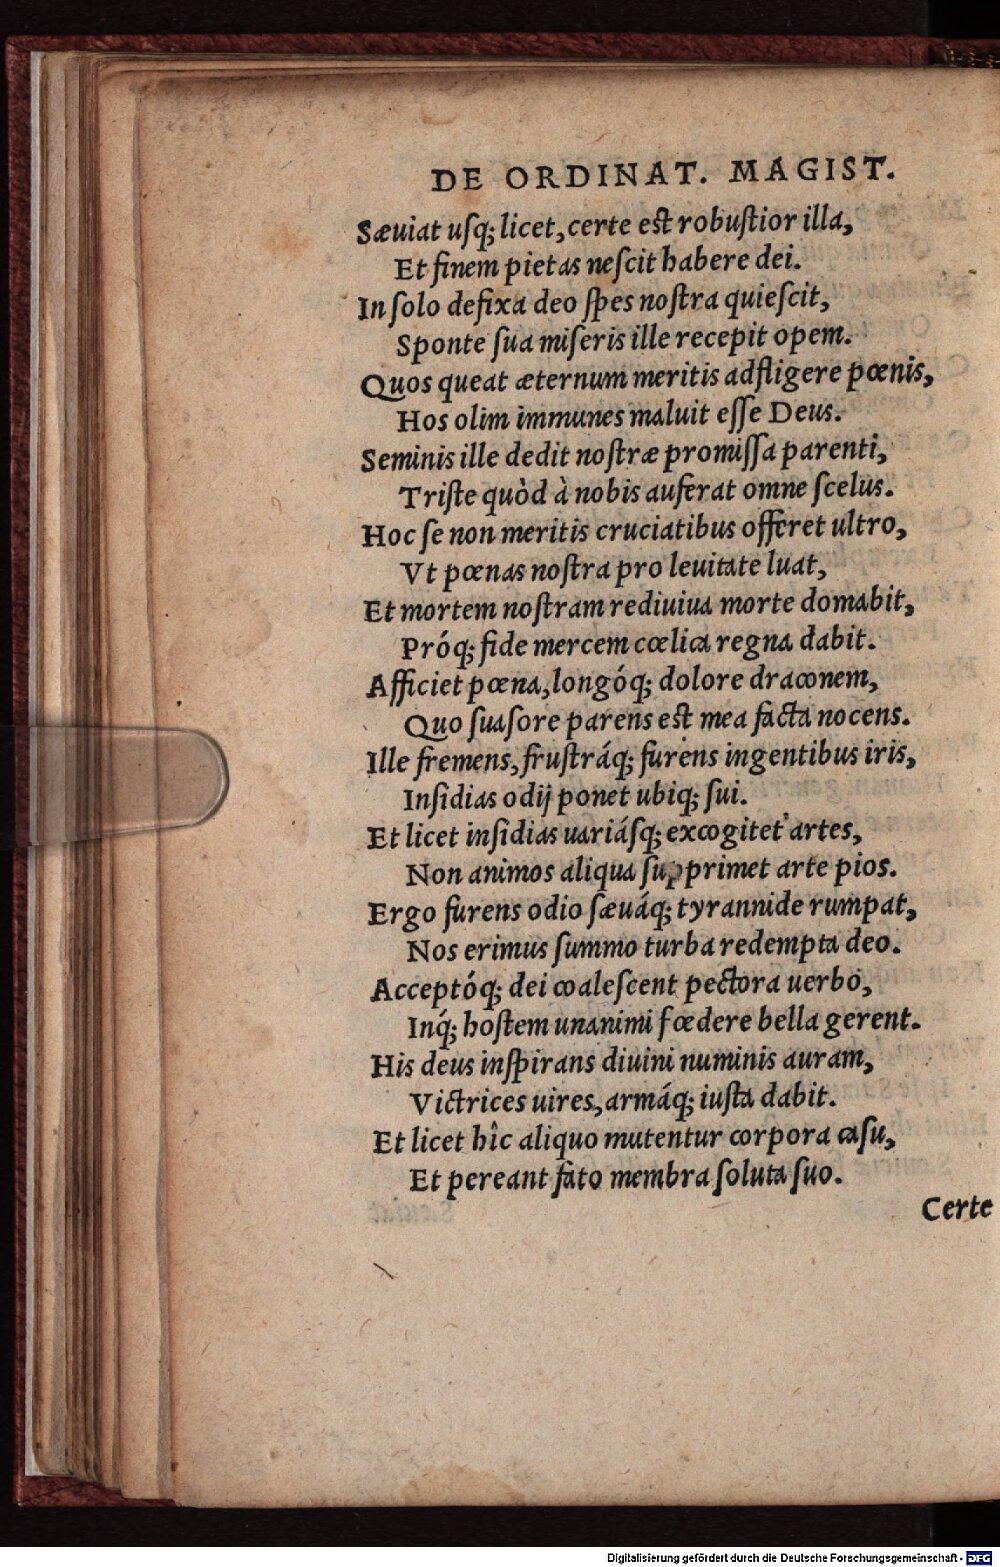 DE ORDINAT. MAGIST.
Sæuiat uſq; licet, certe est robuſtior illa,
Et finem pietas neſcit habere dei.
In ſolo defixa deo ſpes noſtra quieſcit,
Sponte ſua miſeris ille recepit opem.
Quos queat æternum meritis adfligere pœnis,
Hos olim immunes maluit eſſe Deus.
Seminis ille dedit noſtræ promiſſa parenti,
Triſte quòd à nobis auferat omne ſcelus.
Hoc ſe non meritis cruciatibus offeret ultro,
Vt pœnas noſtra pro leuitate luat,
Et mortem noſtram rediuiua morte domabit,
Próq; fide mercem cœlica regna dabit.
Afficiet pœna, longóq; dolore draconem,
Quo ſuaſore parens est mea facta nocens.
Ille fremens, fruſtráq; furens ingentibus iris,
Inſidias odij ponet ubiq; ſui.
Et licet inſidias uariáſq; excogitet artes,
Non animos aliqua ſupprimet arte pios.
Ergo furens odio ſæuáq; tyrannide rumpat,
Nos erimus ſummo turba redempta deo.
Acceptóq; dei coaleſcent pectora uerbo,
Inq́; hoſtem unanimi fœdere bella gerent.
His deus inſpirans diuini numinis auram,
Victrices uires, armáq; iuſta dabit.
Et licet hîc aliquo mutentur corpora caſu,
Et pereant fato membra ſoluta ſuo.
Certe
Digitalisierung gefördert durch die Deutsche Forschungsgemeinschaft - DFG